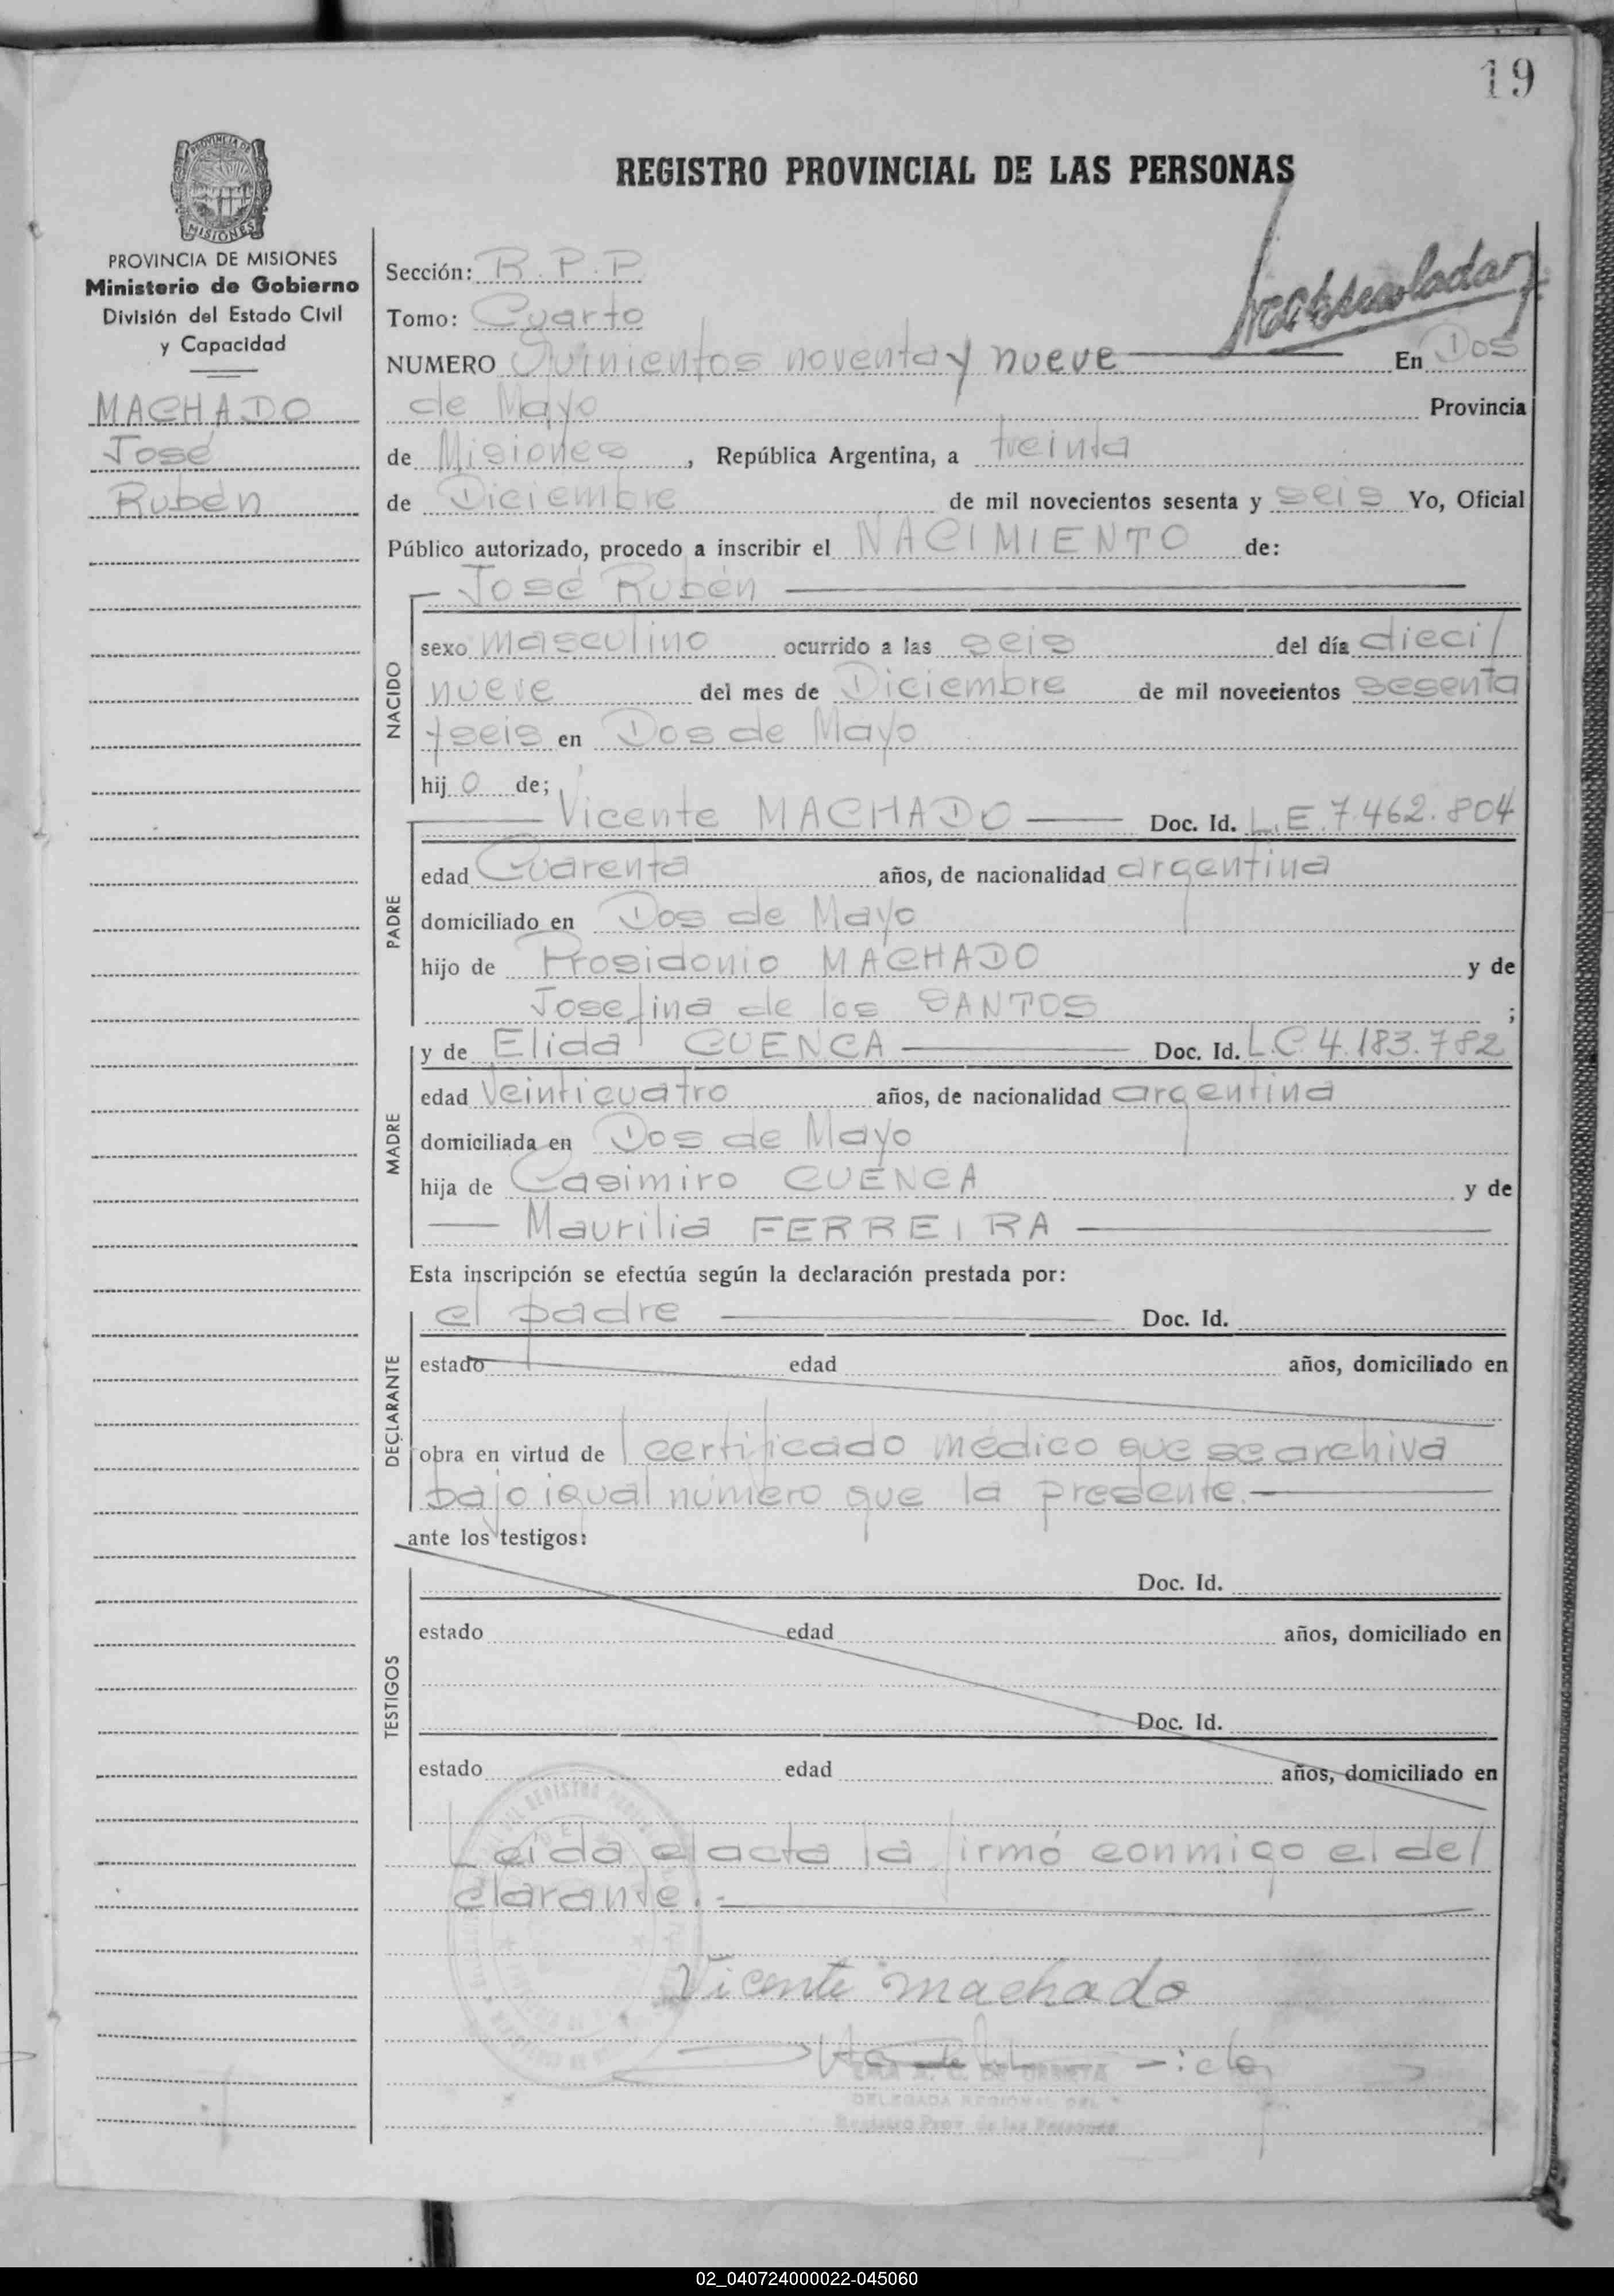 19
REGISTRO PROVINCIAL DE LAS PERSONAS
PROVINCIA DE MISIONES
Ministerio de Gobierno
División del Estado Civil
y Capacidad
MACHADO
José
Rubén
Sección: R.P.P
Tomo: Cuarto
NUMERO Quinientos noventa y nueve En Dos
de Mayo Provincia
de Misiones, República Argentina, a treinta
de Diciembre de mil novecientos sesenta y seis Yo, Oficial
Público autorizado, procedo a inscribir el NACIMIENTO de:
José Rubén
NACIDO
sexo masculino ocurrido a las seis del día dieci/
nueve del mes de Diciembre de mil novecientos sesenta
yseis en Dos de Mayo
hijo de;
Vicente MACHADO Doc. Id. L.E.7.462.804
PADRE
edad Cuarenta años, de nacionalidad argentina
domiciliado en Dos de Mayo
hijo de Prosidonio MACHADO y de
Josefina de los SANTOS ;
y de Elida CUENCA Doc. Id. L.C.4.183.782
MADRE
edad Veinticuatro años, de nacionalidad argentina
domiciliada en Dos de Mayo
hija de Casimiro CUENCA y de
Maurilia FERREIRA
Esta inscripción se efectúa según la declaración prestada por:
el padre Doc. Id.
DECLARANTE
estado edad años, domiciliado en
obra en virtud de certificado médico que se archiva
bajo igual número que la presente.
ante los testigos:
Doc. Id.
TESTIGOS
estado edad años, domiciliado en
Doc. Id.
estado edad años, domiciliado en
Leida el acta la firmó conmigo el de/
clarante.-
Vicente machado
DELEGADA REGIONAL DEL
Registro Prov. de las Personas
02_040724000022-045060